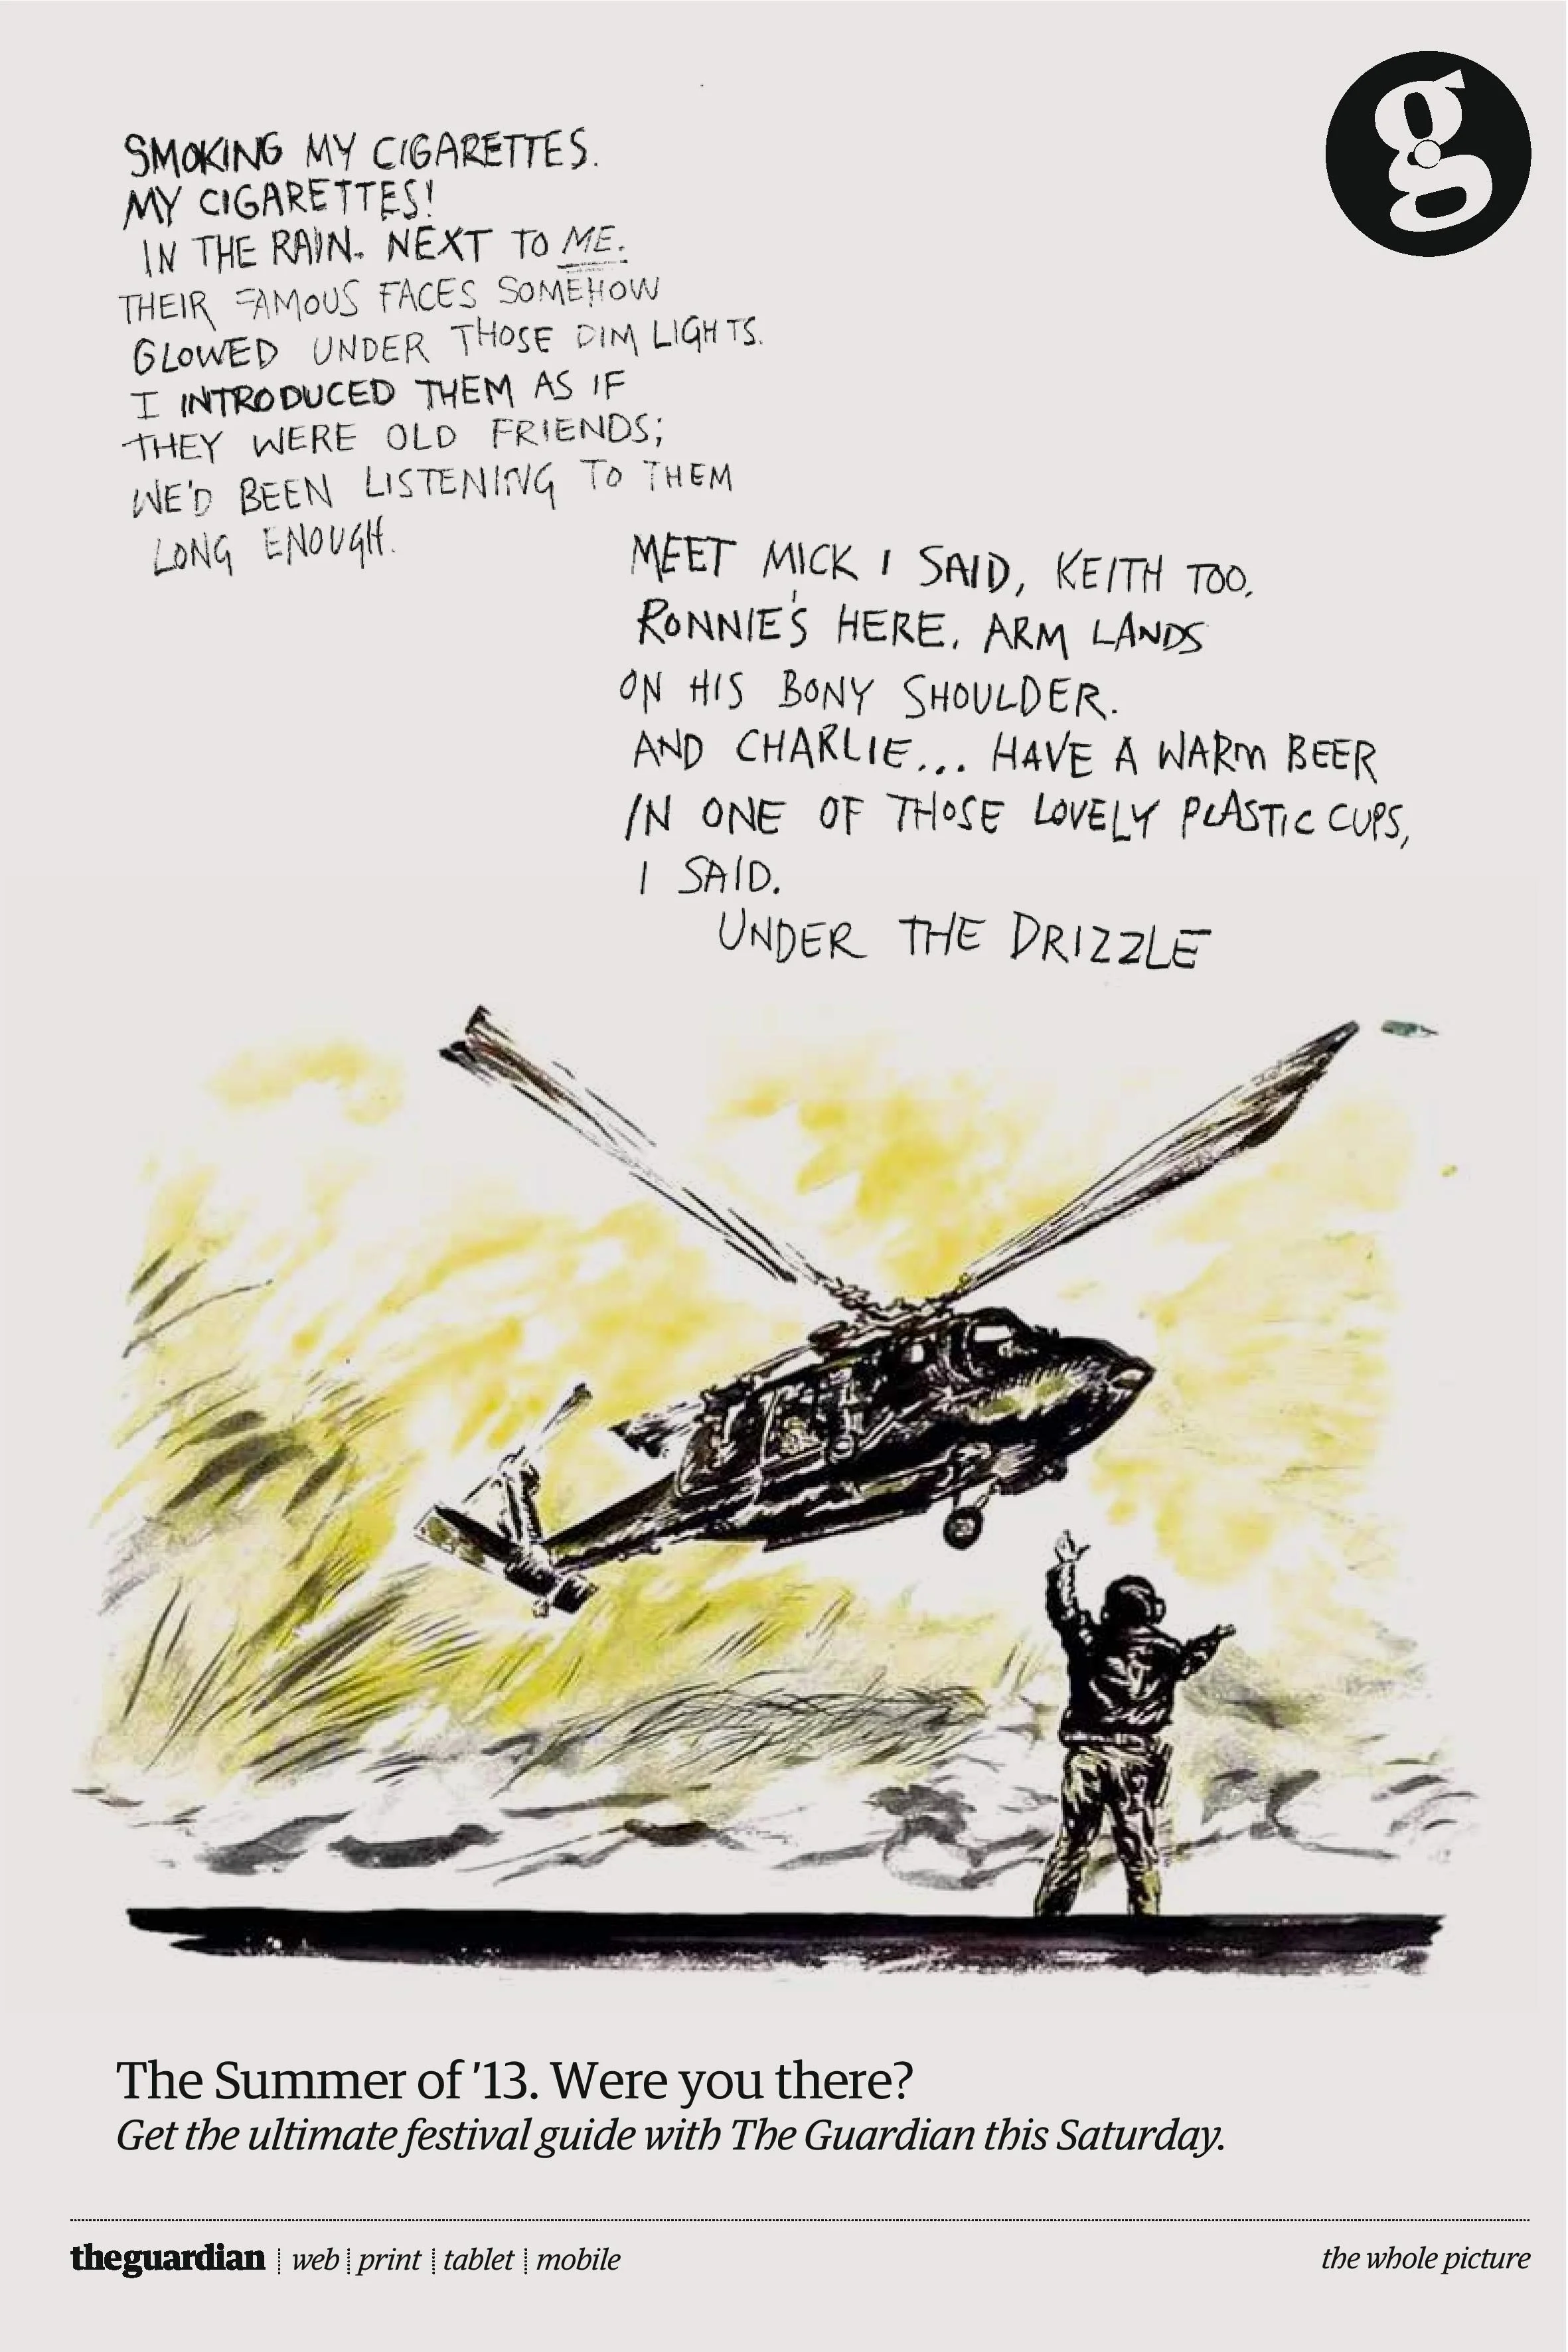 g
SMOKING MY CIGARETTES.
MY CIGARETTES!
IN THE RAIN. NEXT TO ME.
THEIR FAMOUS FACES SOMEHOW
GLOWED UNDER THOSE DIM LIGHTS.
I INTRODUCED THEM AS IF
THEY WERE OLD FRIENDS;
WE'D BEEN LISTENING TO THEM
LONG ENOUGH.
MEET MICK I SAID, KEITH TOO,
RONNIE'S HERE. ARM LANDS
ON HIS BONY SHOULDER.
AND CHARLIE... HAVE A WARM BEER
IN ONE OF THOSE LOVELY PLASTIC CUPS,
I SAID.
UNDER THE DRIZZLE
The Summer of '13. Were you there?
Get the ultimate festival guide with The Guardian this Saturday.
theguardian | web | print | tablet | mobile
the whole picture